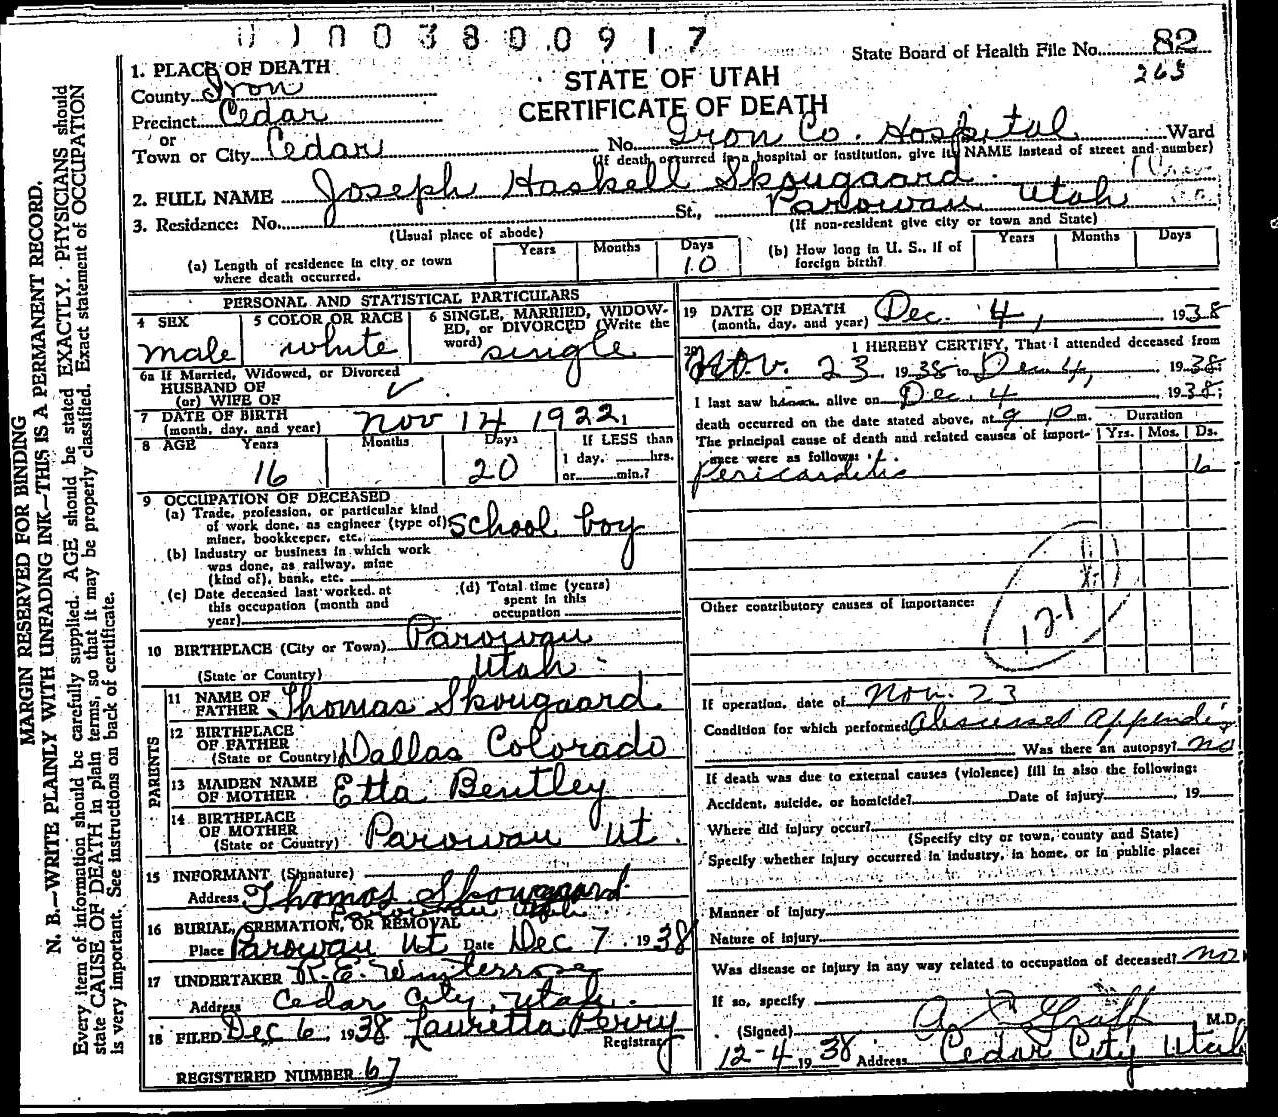 0 0 3 8 0 0 9 1 7
State Board of Health File No. 82
263
STATE OF UTAH
CERTIFICATE OF DEATH
MARGIN RESERVED FOR BINDING
N. B.—WRITE PLAINLY WITH UNFADING INK—THIS IS A PERMANENT RECORD.
Every item of information should be carefully supplied. AGE should be stated EXACTLY. PHYSICIANS should
state CAUSE OF DEATH in plain terms, so that it may be properly classified. Exact statement of OCCUPATION
is very important. See instructions on back of certificate.
1. PLACE OF DEATH
County Iron
Precinct Cedar
or
Town or City Cedar No. Iron Co. Hospital Ward
(If death occurred in a hospital or institution, give its NAME instead of street and number)
2. FULL NAME Joseph Haskell Skougaard
3. Residence: No. St., Parowan Utah
(Usual place of abode) (If non-resident give city or town and State)
(a) Length of residence in city or town where death occurred. Years Months Days 10
(b) How long in U. S., if of foreign birth? Years Months Days
PERSONAL AND STATISTICAL PARTICULARS
4 SEX male
5 COLOR OR RACE white
6 SINGLE, MARRIED, WIDOWED, or DIVORCED (Write the word) single
6a If Married, Widowed, or Divorced
HUSBAND OF
(or) WIFE OF ✓
7 DATE OF BIRTH
(month, day, and year) Nov 14 1922
8 AGE Years 16 Months Days 20 If LESS than
1 day, hrs.
or min.?
9 OCCUPATION OF DECEASED
(a) Trade, profession, or particular kind
of work done, as engineer (type of) school boy
miner, bookkeeper, etc.
(b) Industry or business in which work
was done, as railway, mine
(kind of), bank, etc.
(c) Date deceased last worked at
this occupation (month and
year)
(d) Total time (years)
spent in this
occupation
10 BIRTHPLACE (City or Town) Parowan
(State or Country) Utah
PARENTS
11 NAME OF FATHER Thomas Skougaard
12 BIRTHPLACE OF FATHER
(State or Country) Dallas Colorado
13 MAIDEN NAME OF MOTHER Etta Bentley
14 BIRTHPLACE OF MOTHER
(State or Country) Parowan Ut.
15 INFORMANT (Signature)
Address Thomas Skougaard
Parowan Utah
16 BURIAL, CREMATION, OR REMOVAL
Place Parowan Ut Date Dec 7, 1938
17 UNDERTAKER R. E. Winterrose
Address Cedar City, Utah.
18 FILED Dec 6, 1938 Lauretta Perry
Registrar
REGISTERED NUMBER 67
19 DATE OF DEATH
(month, day, and year) Dec. 4, 1938
20 I HEREBY CERTIFY, That I attended deceased from
Nov. 23, 1938 to Dec 4, 1938
I last saw him alive on Dec. 4 1938;
death occurred on the date stated above, at 9 10 m.
The principal cause of death and related causes of importance were as follows:
Duration
Yrs. Mos. Ds.
Pericarditis 6
Other contributory causes of importance:
121
If operation, date of Nov. 23
Condition for which performed Abscessed Appendix
Was there an autopsy? no
If death was due to external causes (violence) fill in also the following:
Accident, suicide, or homicide? Date of injury , 19
Where did injury occur?
(Specify city or town, county and State)
Specify whether injury occurred in industry, in home, or in public place:
Manner of injury
Nature of injury
Was disease or injury in any way related to occupation of deceased? no
If so, specify
(Signed) Graff M.D.
12-4 1938 Address Cedar City Utah